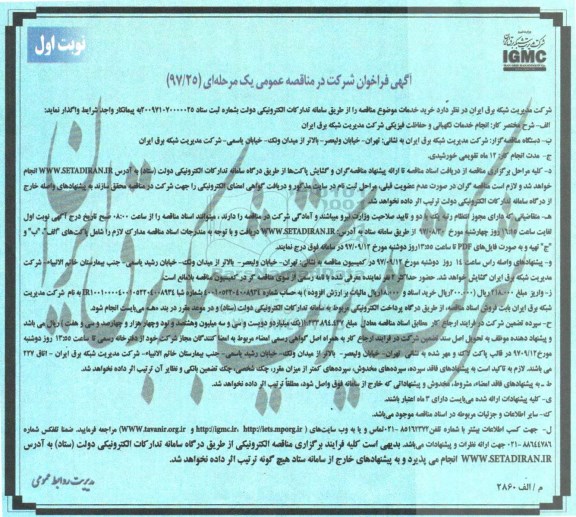 نوبت اول
شرکت مدیریت شبکه برق ایران
IGMC
آگهی فراخوان شرکت در مناقصه عمومی یک مرحله‌ای (۹۷/۲۵)
شرکت مدیریت شبکه برق ایران در نظر دارد خرید خدمات موضوع مناقصه را از طریق سامانه تدارکات الکترونیکی دولت بشماره ثبت ستاد ۲۰۰۹۷۱۰۷۰۰۰۰۰۲۵ به پیمانکار واجد شرایط واگذار نماید:
الف- شرح مختصر کار: انجام خدمات نگهبانی و حفاظت فیزیکی شرکت مدیریت شبکه برق ایران
ب- دستگاه مناقصه گزار: شرکت مدیریت شبکه برق ایران به نشانی: تهران- خیابان ولیعصر- بالاتر از میدان ونک- خیابان یاسمی- شرکت مدیریت شبکه برق ایران
ج- مدت انجام کار: ۱۲ ماه تقویمی خورشیدی.
د- کلیه مراحل برگزاری مناقصه از دریافت اسناد مناقصه تا ارائه پیشنهاد مناقصه‌گران و گشایش پاکت‌ها از طریق درگاه سامانه تدارکات الکترونیکی دولت (ستاد) به آدرس WWW.SETADIRAN.IR انجام
خواهد شد و لازم است مناقصه گران در صورت عدم عضویت قبلی، مراحل ثبت نام در سایت مذکور و دریافت گواهی امضای الکترونیکی را جهت شرکت در مناقصه محقق سازند. به پیشنهادهای واصله خارج
از درگاه سامانه تدارکات الکترونیکی دولت ترتیب اثر داده نخواهد شد.
ه- متقاضیانی که دارای مجوز انتظام رده یک یا دو و تایید صلاحیت وزارت نیرو میباشند و آمادگی شرکت در مناقصه را دارند، میتوانند اسناد مناقصه را از ساعت ۰۸:۰۰ صبح تاریخ درج آگهی نوبت اول
لغایت ساعت ۱۹:۰۰ روز چهارشنبه مورخ ۹۷/۰۸/۳۰ از طریق سامانه ستاد به آدرس WWW.SETADIRAN.IR دریافت و با توجه به مندرجات اسناد مناقصه مدارک لازم را شامل پاکت‌های "الف"، "ب" و
"ج" تهیه و به صورت فایل‌های PDF تا ساعت ۱۳:۵۵ روز دوشنبه مورخ ۹۷/۰۹/۱۲ در سامانه فوق درج نمایند.
و- پیشنهادهای واصله راس ساعت ۱۴ روز دوشنبه مورخ ۹۷/۰۹/۱۲ در کمیسیون مناقصه به نشانی: تهران- خیابان ولیعصر- بالاتر از میدان ونک- خیابان رشید یاسمی- جنب بیمارستان خاتم الانبیاء- شرکت
مدیریت شبکه برق ایران گشایش خواهد شد. حضور حداکثر ۲ نفر نماینده معرفی شده با نامه رسمی از سوی مناقصه گر در کمیسیون مناقصه بلامانع است.
ز- واریز مبلغ ۲۱۸.۰۰۰ ریال (۲۰۰.۰۰۰ ریال خرید اسناد و ۱۸.۰۰۰ ریال مالیات بر ارزش افزوده) به حساب شماره
به نام شرکت مدیریت
شبکه برق ایران بابت فروش اسناد مناقصه، از طریق درگاه پرداخت الکترونیکی مربوط به سامانه تدارکات الکترونیکی دولت (ستاد) و در موعد مقرر در بند «ه» می‌بایست انجام شود.
ح- سپرده تضمین شرکت در فرایند ارجاع کار مطابق اسناد مناقصه معادل مبلغ
(یک میلیارد دویست و سی و سه میلیون و هشتصد و نود و چهار هزار و چهارصد و سی و هفت) ریال می باشد
و پیشنهاد دهنده موظف به تحویل اصل سند تضمین شرکت در فرایند ارجاع کار به همراه اصل گواهی رسمی امضاء مربوط به امضاءکنندگان مجاز شرکت خود از دفترخانه رسمی تا ساعت ۱۳:۵۵ روز دوشنبه
مورخ ۹۷/۰۹/۱۲ در قالب پاکت لاک و مهر شده به نشانی تهران- خیابان ولیعصر- بالاتر از میدان ونک- خیابان رشید یاسمی- جنب بیمارستان خاتم الانبیاء- شرکت مدیریت شبکه برق ایران- اتاق ۲۳۷
می باشند. لازم به تاکید است به پیشنهادهای فاقد سپرده، سپرده‌های مخدوش، سپرده‌های کمتر از میزان مقرر، چک شخصی، چک تضمین بانکی و نظایر آن ترتیب اثر داده نخواهد شد.
ط- به پیشنهادهای فاقد امضاء، مشروط، مخدوش و پیشنهاداتی که خارج از سامانه فوق واصل شود، مطلقاً ترتیب اثر داده نخواهد شد.
ی- کلیه پیشنهادات ارائه شده می‌بایست دارای ۳ ماه اعتبار باشند.
ک- سایر اطلاعات و جزئیات مربوطه در اسناد مناقصه موجود می‌باشد.
ل- جهت کسب اطلاعات بیشتر با شماره تلفن ۸۵۱۶۲۳۷۳-۰۲۱ تماس و یا به وب سایت‌های (http://iets.mporg.ir، http://igmc.ir و WWW.tavanir.org.ir) مراجعه فرمایید. ضمنا تلفکس شماره
۸۸۶۴۴۷۸۶-۰۲۱ جهت ارائه نظرات و پیشنهادات می‌باشد. بدیهی است کلیه فرایند برگزاری مناقصه الکترونیکی از طریق درگاه سامانه تدارکات الکترونیکی دولت (ستاد) به آدرس
WWW.SETADIRAN.IR انجام می پذیرد و به پیشنهادهای خارج از سامانه ستاد هیچ گونه ترتیب اثر داده نخواهد شد.
م/الف ۲۸۶۰
مدیریت روابط عمومی